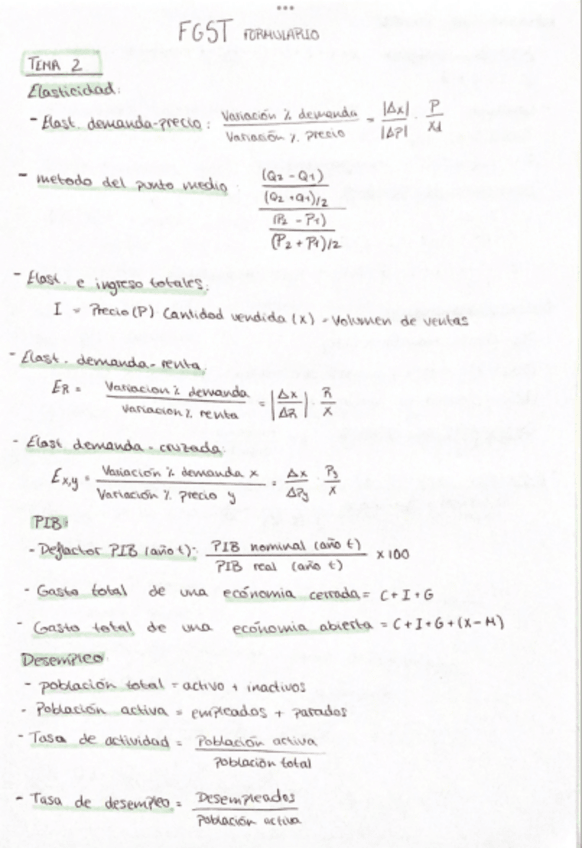 FGST FORMULARIO
TEMA 2
Elasticidad:
- Elast. demanda-precio: Variación % demanda / Variación % precio = |Δx| / |Δp| · P / Xd
- metodo del punto medio: (Q2 - Q1) / (Q2 + Q1)/2 / (P2 - P1) / (P2 + P1)/2
- Elast. e ingreso totales:
I = Precio (P) Cantidad vendida (x) - Volumen de ventas
- Elast. demanda-renta:
ER = Variacion % demanda / Variacion % renta = |Δx / ΔR| · R / X
- Elast demanda-cruzada:
Ex,y = Variación % demanda x / Variación % precio y = Δx / ΔPy · Py / X
PIB:
- Deflactor PIB (año t): PIB nominal (año t) / PIB real (año t) x 100
- Gasto total de una económia cerrada = C + I + G
- Gasto total de una económia abierta = C + I + G + (X - M)
Desempleo
- población total = activo + inactivos
- Población activa = empleados + parados
- Tasa de actividad = Población activa / población total
- Tasa de desempleo = Desempleados / población activa